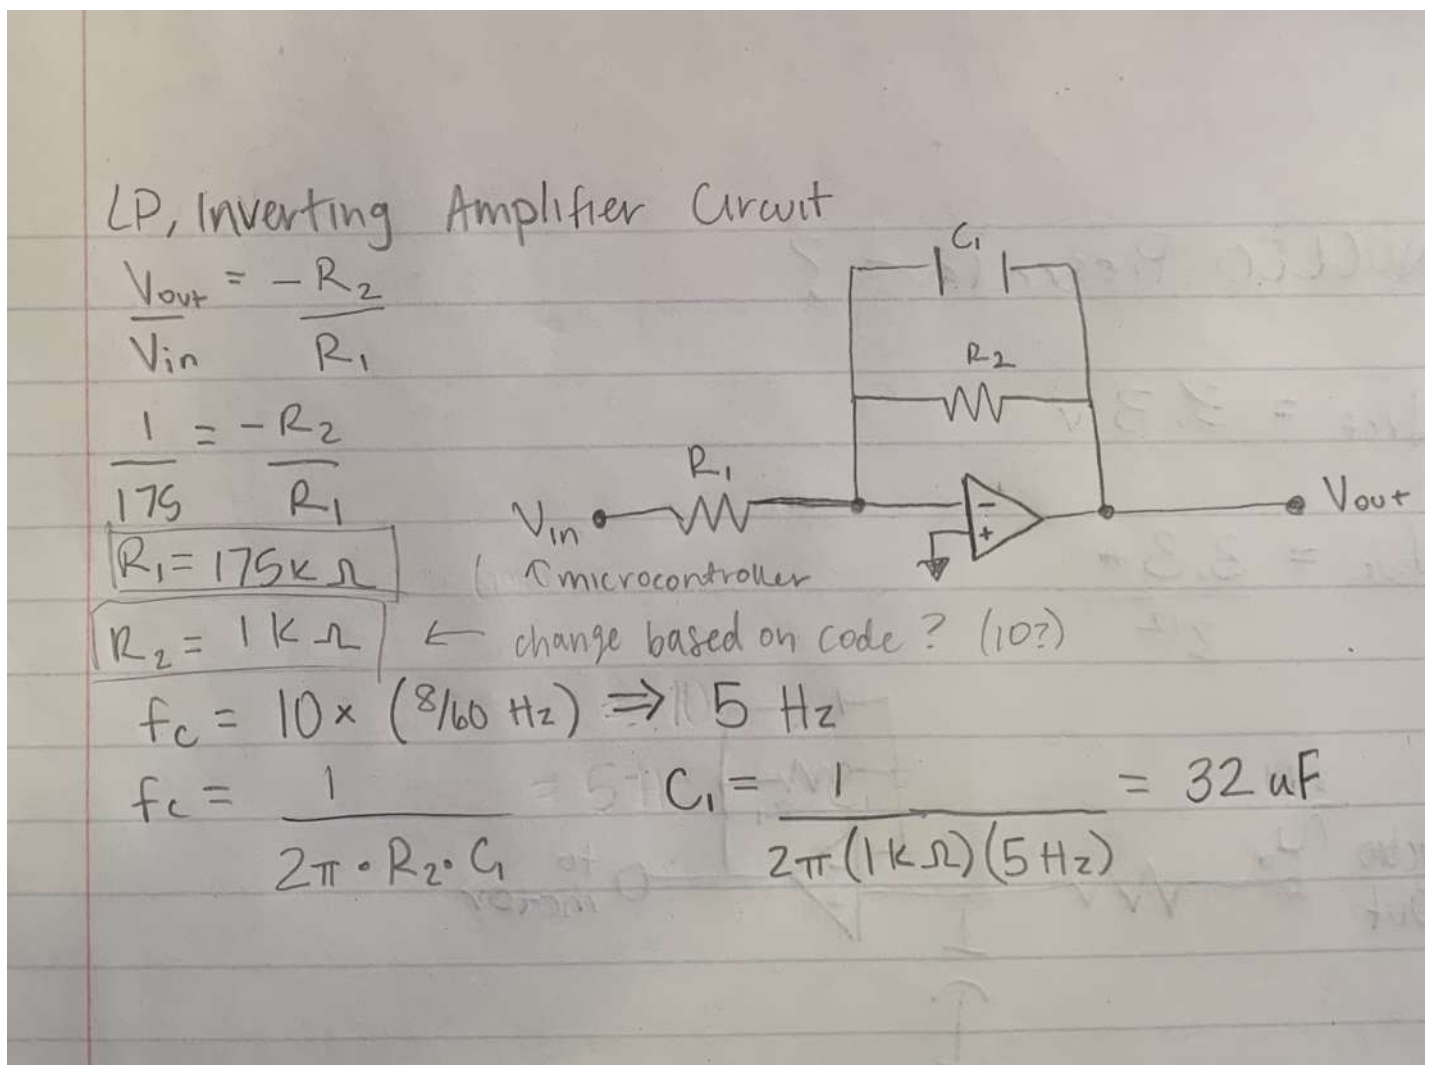 LP, Inverting Amplifier Circuit
Vout / Vin = -R2 / R1
1 / 175 = -R2 / R1
R1 = 175 k Ω
R2 = 1 k Ω ← change based on code? (10?)
fc = 10 × (8/60 Hz) ⇒ 5 Hz
fc = 1 / 2π · R2 · C1
C1 = 1 / 2π (1 k Ω) (5 Hz) = 32 uF
C1
R2
R1
Vin
- 
+
Vout
↑ microcontroller